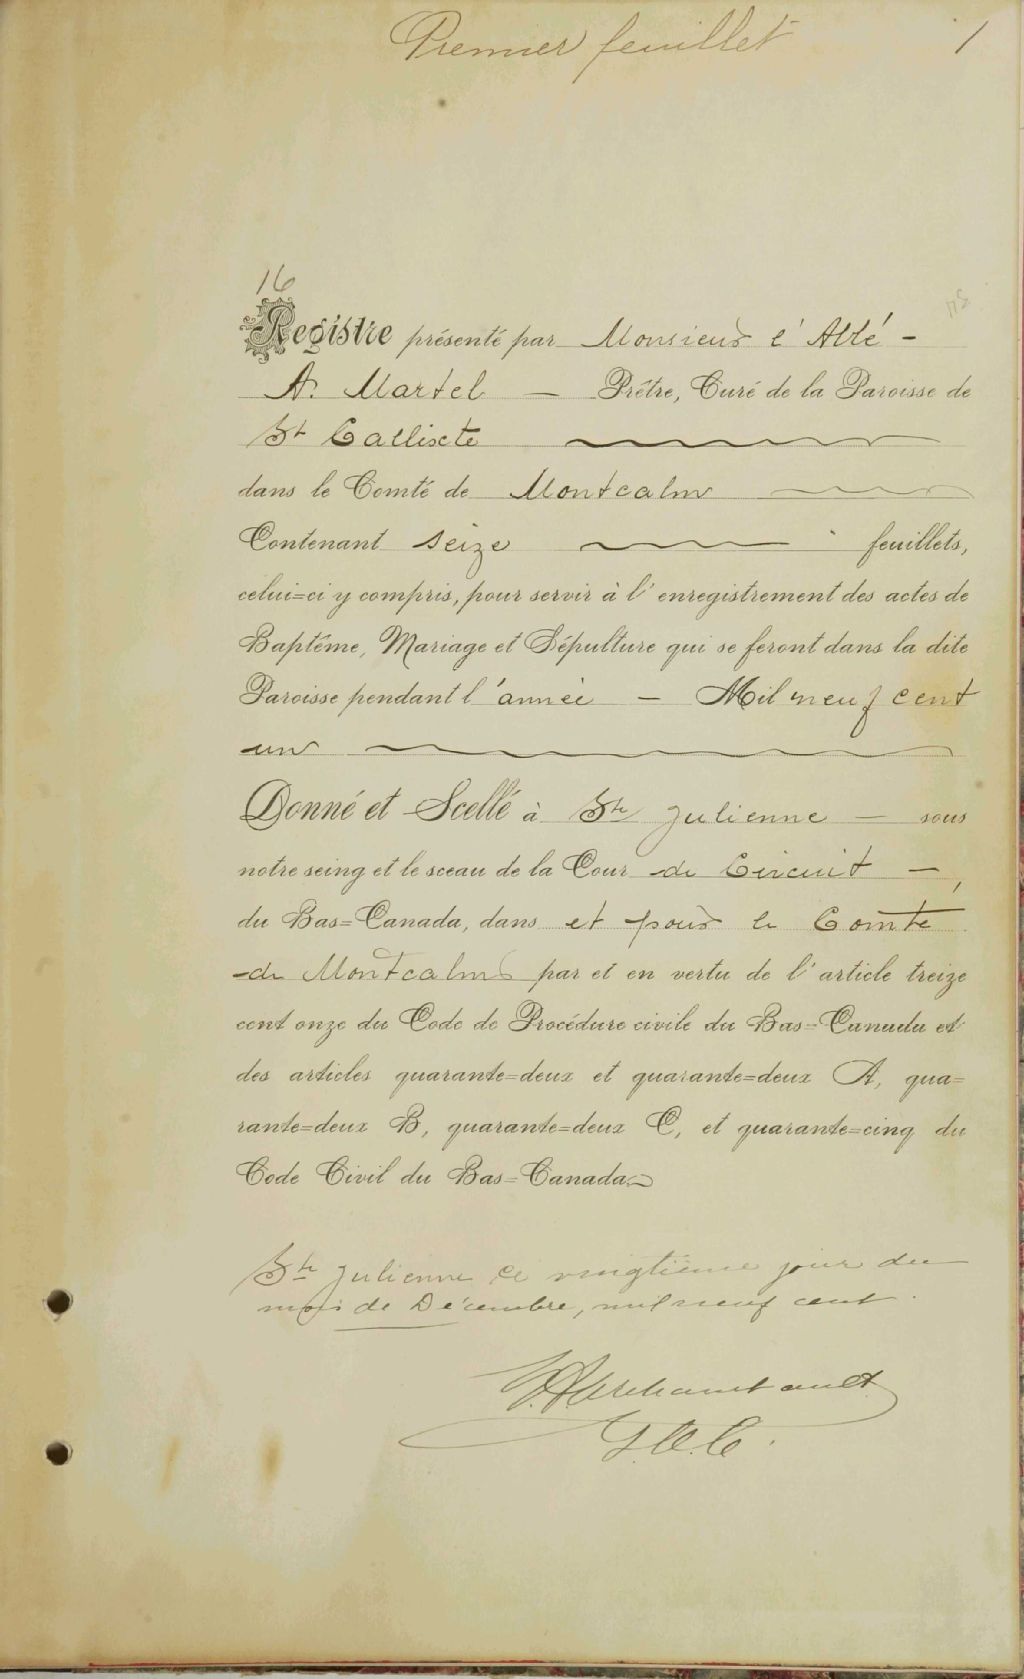 Premier feuillet 1
16
Registre présenté par Monsieur l'Abbé -
A. Martel — Prêtre, Curé de la Paroisse de
St Callixte
dans le Comté de Montcalm
Contenant seize feuillets,
celui=ci y compris, pour servir à l'enregistrement des actes de
Baptême, Mariage et Sépulture qui se feront dans la dite
Paroisse pendant l'année — Mil neuf cent
un
Donné et Scellé à Ste Julienne — sous
notre seing et le sceau de la Cour de Circuit —,
du Bas=Canada, dans et pour le Comté
de Montcalm par et en vertu de l'article treize
cent onze du Code de Procédure civile du Bas=Canada et
des articles quarante=deux et quarante=deux A, qua=
rante=deux B, quarante=deux C, et quarante=cinq du
Code Civil du Bas=Canada.
Ste Julienne ce vingtième jour du
mois de Décembre, mil neuf cent.